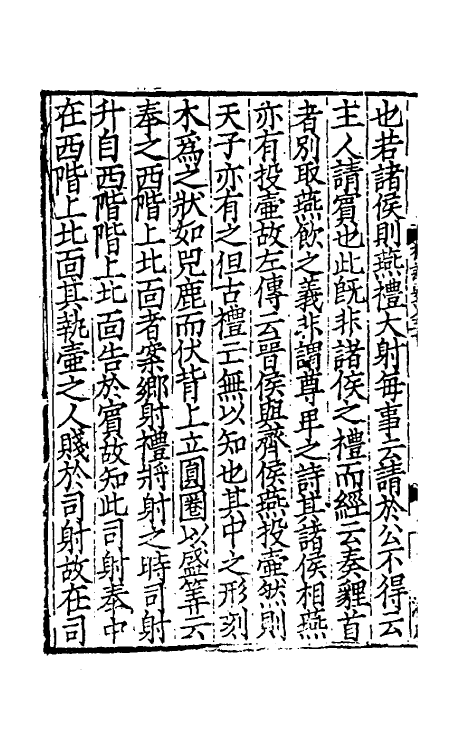 也若諸侯則燕禮大射每事云請於公不得云
主人請賓也此旣非諸侯之禮而經云奏貍首
者別取燕飲之義非謂尊卑之詩其諸侯相燕
亦有投壷故左傳云晉侯與齊侯燕投壷然則
天子亦有之但古禮亡無以知也其中之形刻
木爲之狀如兕鹿而伏背上立圓圈以盛筭云
奉之西階上北面者案鄉射禮將射之時司射
升自西階階上北面告於賓故知此司射奉中
在西階上北面其執壷之人賤於司射故在司